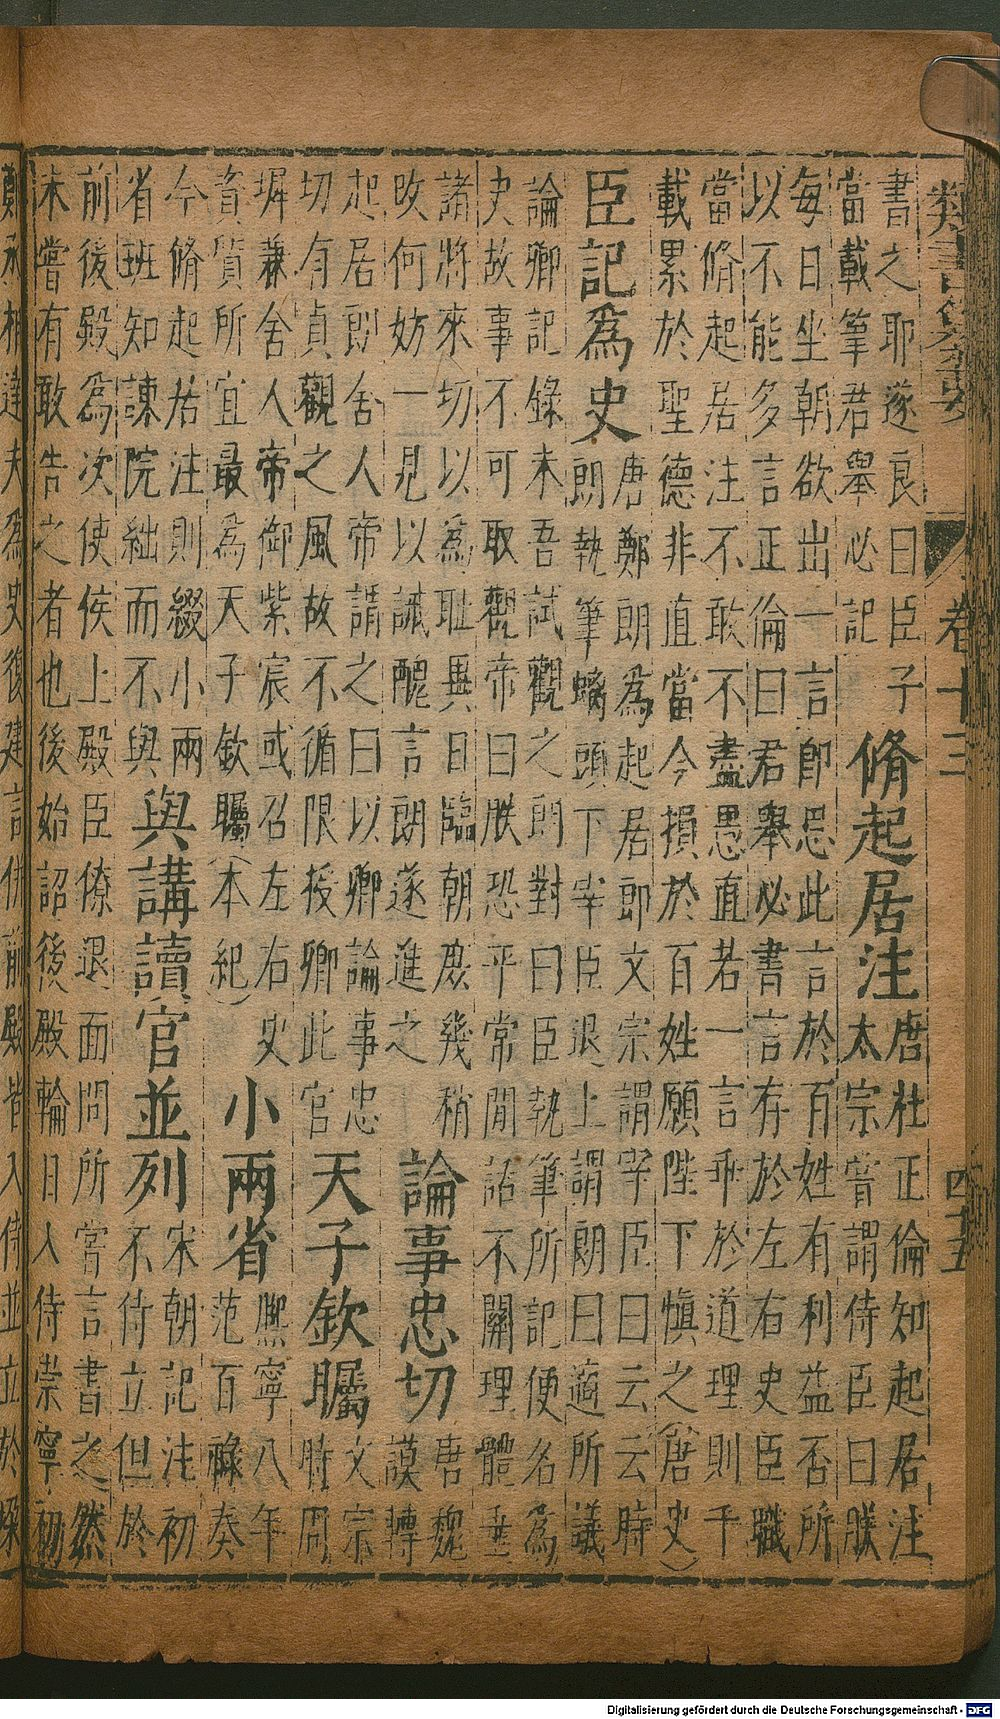 類書纂要 卷十三 四十五
書之耶遂良曰臣子
當載筆君舉必記
脩起居注
唐杜正倫知起居注
太宗嘗謂侍臣曰朕
每日坐朝欲出一言即思此言於百姓有利益否所
以不能多言正倫曰君舉必書言存於左右史臣職
當脩起居注不敢不盡愚直若一言乖於道理則千
載累於聖德非直當今損於百姓願陛下慎之(唐史)
臣記為史
唐鄭朗為起居郎文宗謂宰臣曰云云時
朗執筆螭頭下宰臣退上謂朗曰適所議
論卿記錄未吾試觀之朗對曰臣執筆所記便名為
史故事不可取觀帝曰朕恐平常閒話不關理體垂
諸將來切以為恥異日臨朝庶幾稍
改何妨一見以誡醜言朗遂進之
論事忠切
唐魏
謨轉
起居郎舍人帝謂之曰以卿論事忠
切有貞觀之風故不循限授卿此官
天子欽矚
文宗
時周
墀兼舍人帝御紫宸或召左右史
資質所宜最為天子欽矚(本紀)
小兩省
熙寧八年
范百祿奏
今脩起居注則綴小兩
省班知諫院絀而不與
與講讀官並列
宋朝記注初
不侍立但於
前後殿為次使侯上殿臣僚退面問所嘗言書之然
未嘗有敢告之者也後始詔後殿輪日入侍崇寧初
鄭丞相達夫為史復建言併前殿皆入侍並立於垛
Digitalisierung gefördert durch die Deutsche Forschungsgemeinschaft - DFG